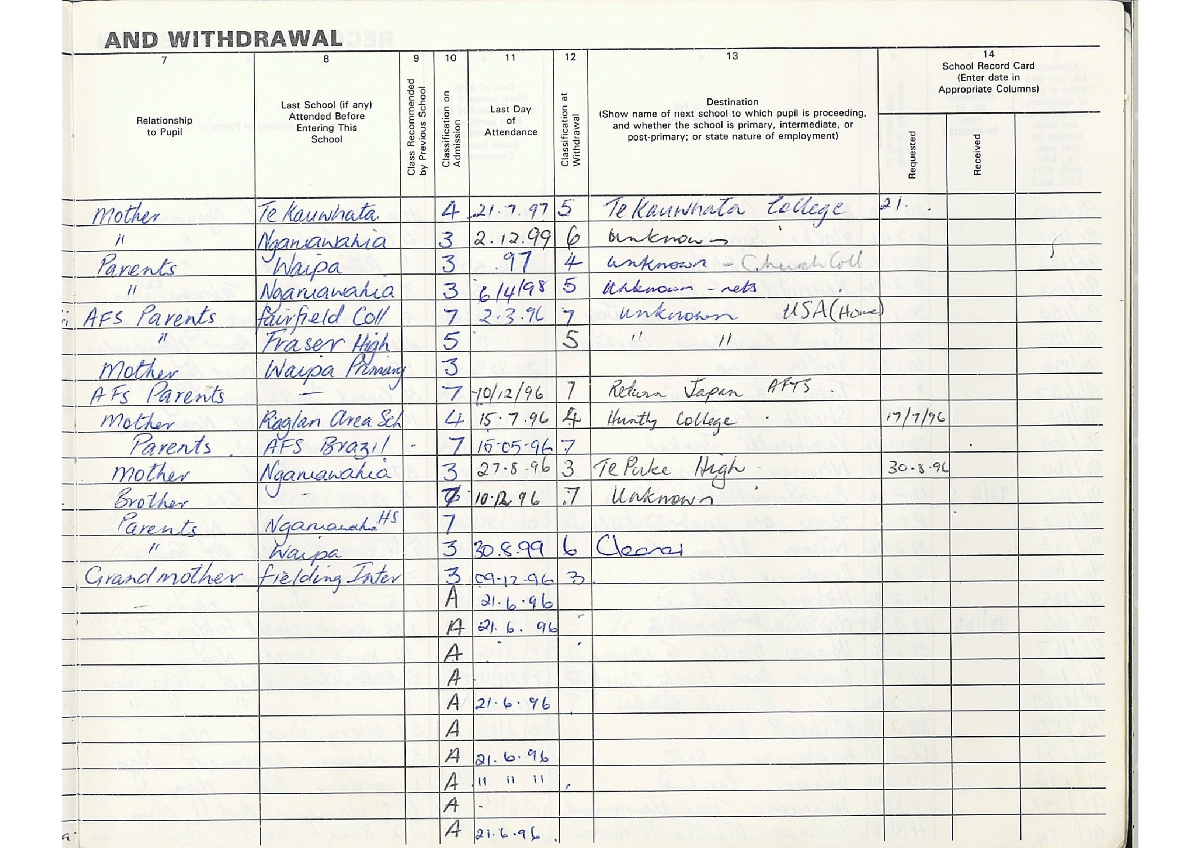 AND WITHDRAWAL
7 8 9 10 11 12 13 14
Relationship to Pupil
Last School (if any) Attended Before Entering This School
Class Recommended by Previous School
Classification on Admission
Last Day of Attendance
Classification at Withdrawal
Destination
(Show name of next school to which pupil is proceeding, and whether the school is primary, intermediate, or post-primary; or state nature of employment)
School Record Card
(Enter date in Appropriate Columns)
Requested
Received
Mother Te Kauwhata. 4 21.7.97 5 Te Kauwhata College 21.
" Ngaruawahia 3 2.12.99 6 unknown
Parents Waipa 3 .97 4 unknown - Church Coll
" Ngaruawahia 3 6/4/98 5 unknown -
AFS Parents Fairfield Coll 7 2.3.96 7 unknown USA (Home)
" Fraser High 5 5 " "
Mother Waipa Primary 3
AFS Parents — 7 10/12/96 7 Return Japan AFTS.
Mother Raglan Area Sch 4 15.7.96 4 Huntly College 17/7/96
Parents AFS Brazil 7 15.05.96 7
Mother Ngaruawahia 3 27.8.96 3 Te Puke High 30.8.96
Brother - 7 10.12.96 7 Unknown
Parents Ngaruawahia HS 7
" Waipa 3 30.8.99 6
Grandmother Fielding Inter 3 09.12.96 3
A 21.6.96
A 21.6.96
A
A
A 21.6.96
A
A 21.6.96
A " " "
A
A 21.6.96